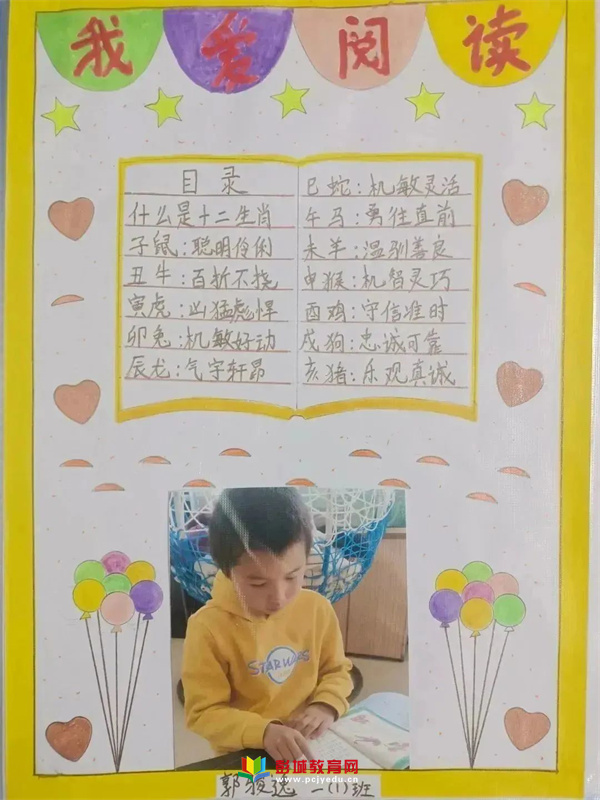 我爱阅读
目录
什么是十二生肖
子鼠:聪明伶俐
丑牛:百折不挠
寅虎:凶猛彪悍
卯兔:机敏好动
辰龙:气宇轩昂
巳蛇:机敏灵活
午马:勇往直前
未羊:温别善良
申猴:机智灵巧
酉鸡:守信准时
戌狗:忠诚可靠
亥猪:乐观真诚
STAR WARS
彭城教育网
www.pcjyedu.cn
郭骏逸 一(1)班